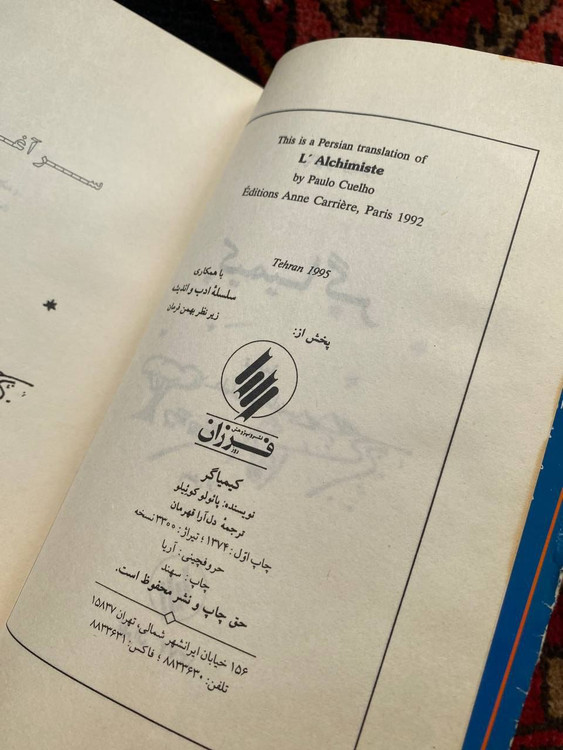 This is a Persian translation of
L´ Alchimiste
by Paulo Cuelho
Éditions Anne Carrière, Paris 1992
Tehran 1995
با همکاری
سلسلهٔ ادب و اندیشه
زیر نظر بهمن فرمان
پخش از:
نشر و پژوهش
فرزان
روز
کیمیاگر
نویسنده: پائولو کوئیلو
ترجمهٔ دل‌آرا قهرمان
چاپ اوّل: ۱۳۷۴؛ تیراژ: ۳۳۰۰ نسخه
حروفچینی: آریا
چاپ: سهند
حق چاپ و نشر محفوظ است.
۱۵۶ خیابان ایرانشهر شمالی، تهران ۱۵۸۳۷
تلفن: ۸۸۳۳۶۳۰؛ فاکس: ۸۸۳۳۶۳۱